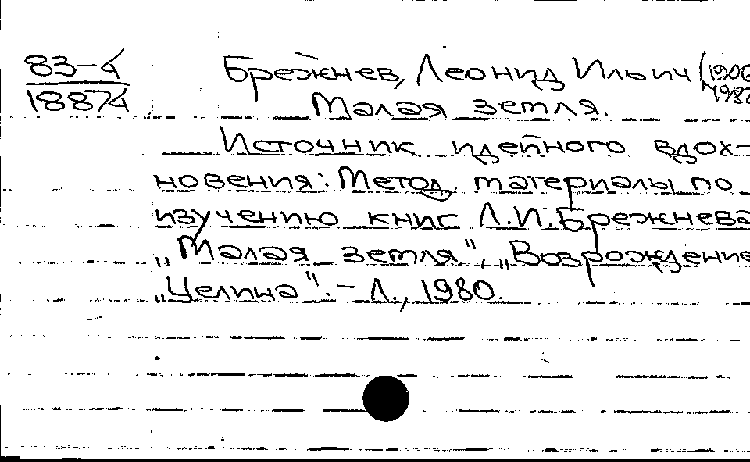 83-4
18874
Брежнев, Леонид Ильич (1906-
1982
Малая земля.
Источник идейного вдох-
новения: Метод. материалы по
изучению книг Л.И.Брежнева
„Малая земля", „Возрождение
„Целина". - Л., 1980.